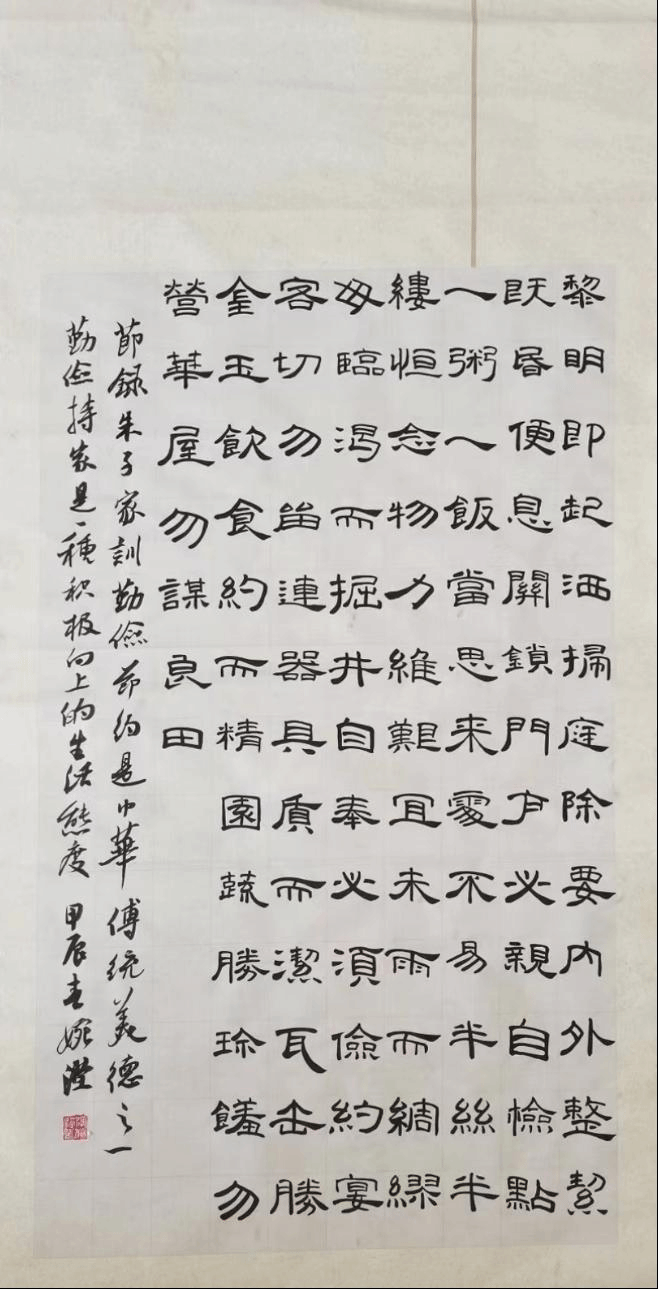 黎明即起洒掃庭除要内外整潔
既昏便息關鎖門户必親自檢點
一粥一飯當思来處不易半絲半
縷恒念物力維艱宜未雨而綢繆
毋臨渴而掘井自奉必須儉約宴
客切勿留連器具質而潔瓦缶勝
金玉飲食約而精園蔬勝珍饈勿
營華屋勿謀良田
節録朱子家訓勤儉節約是中華傳統美德之一
勤俭持家是一種积极向上的生活態度甲辰春婉瀅